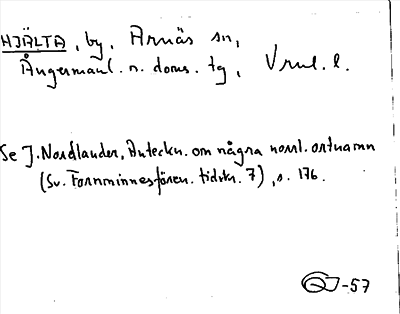 HJÄLTA, by, Arnäs sn,
Ångermanl. n. doms. tg, Vrnl. l.
Se J. Nordlander, Anteckn. om några norrl. ortnamn
(Sv. Fornminnesfören. tidskr. 7), s. 176.
-57